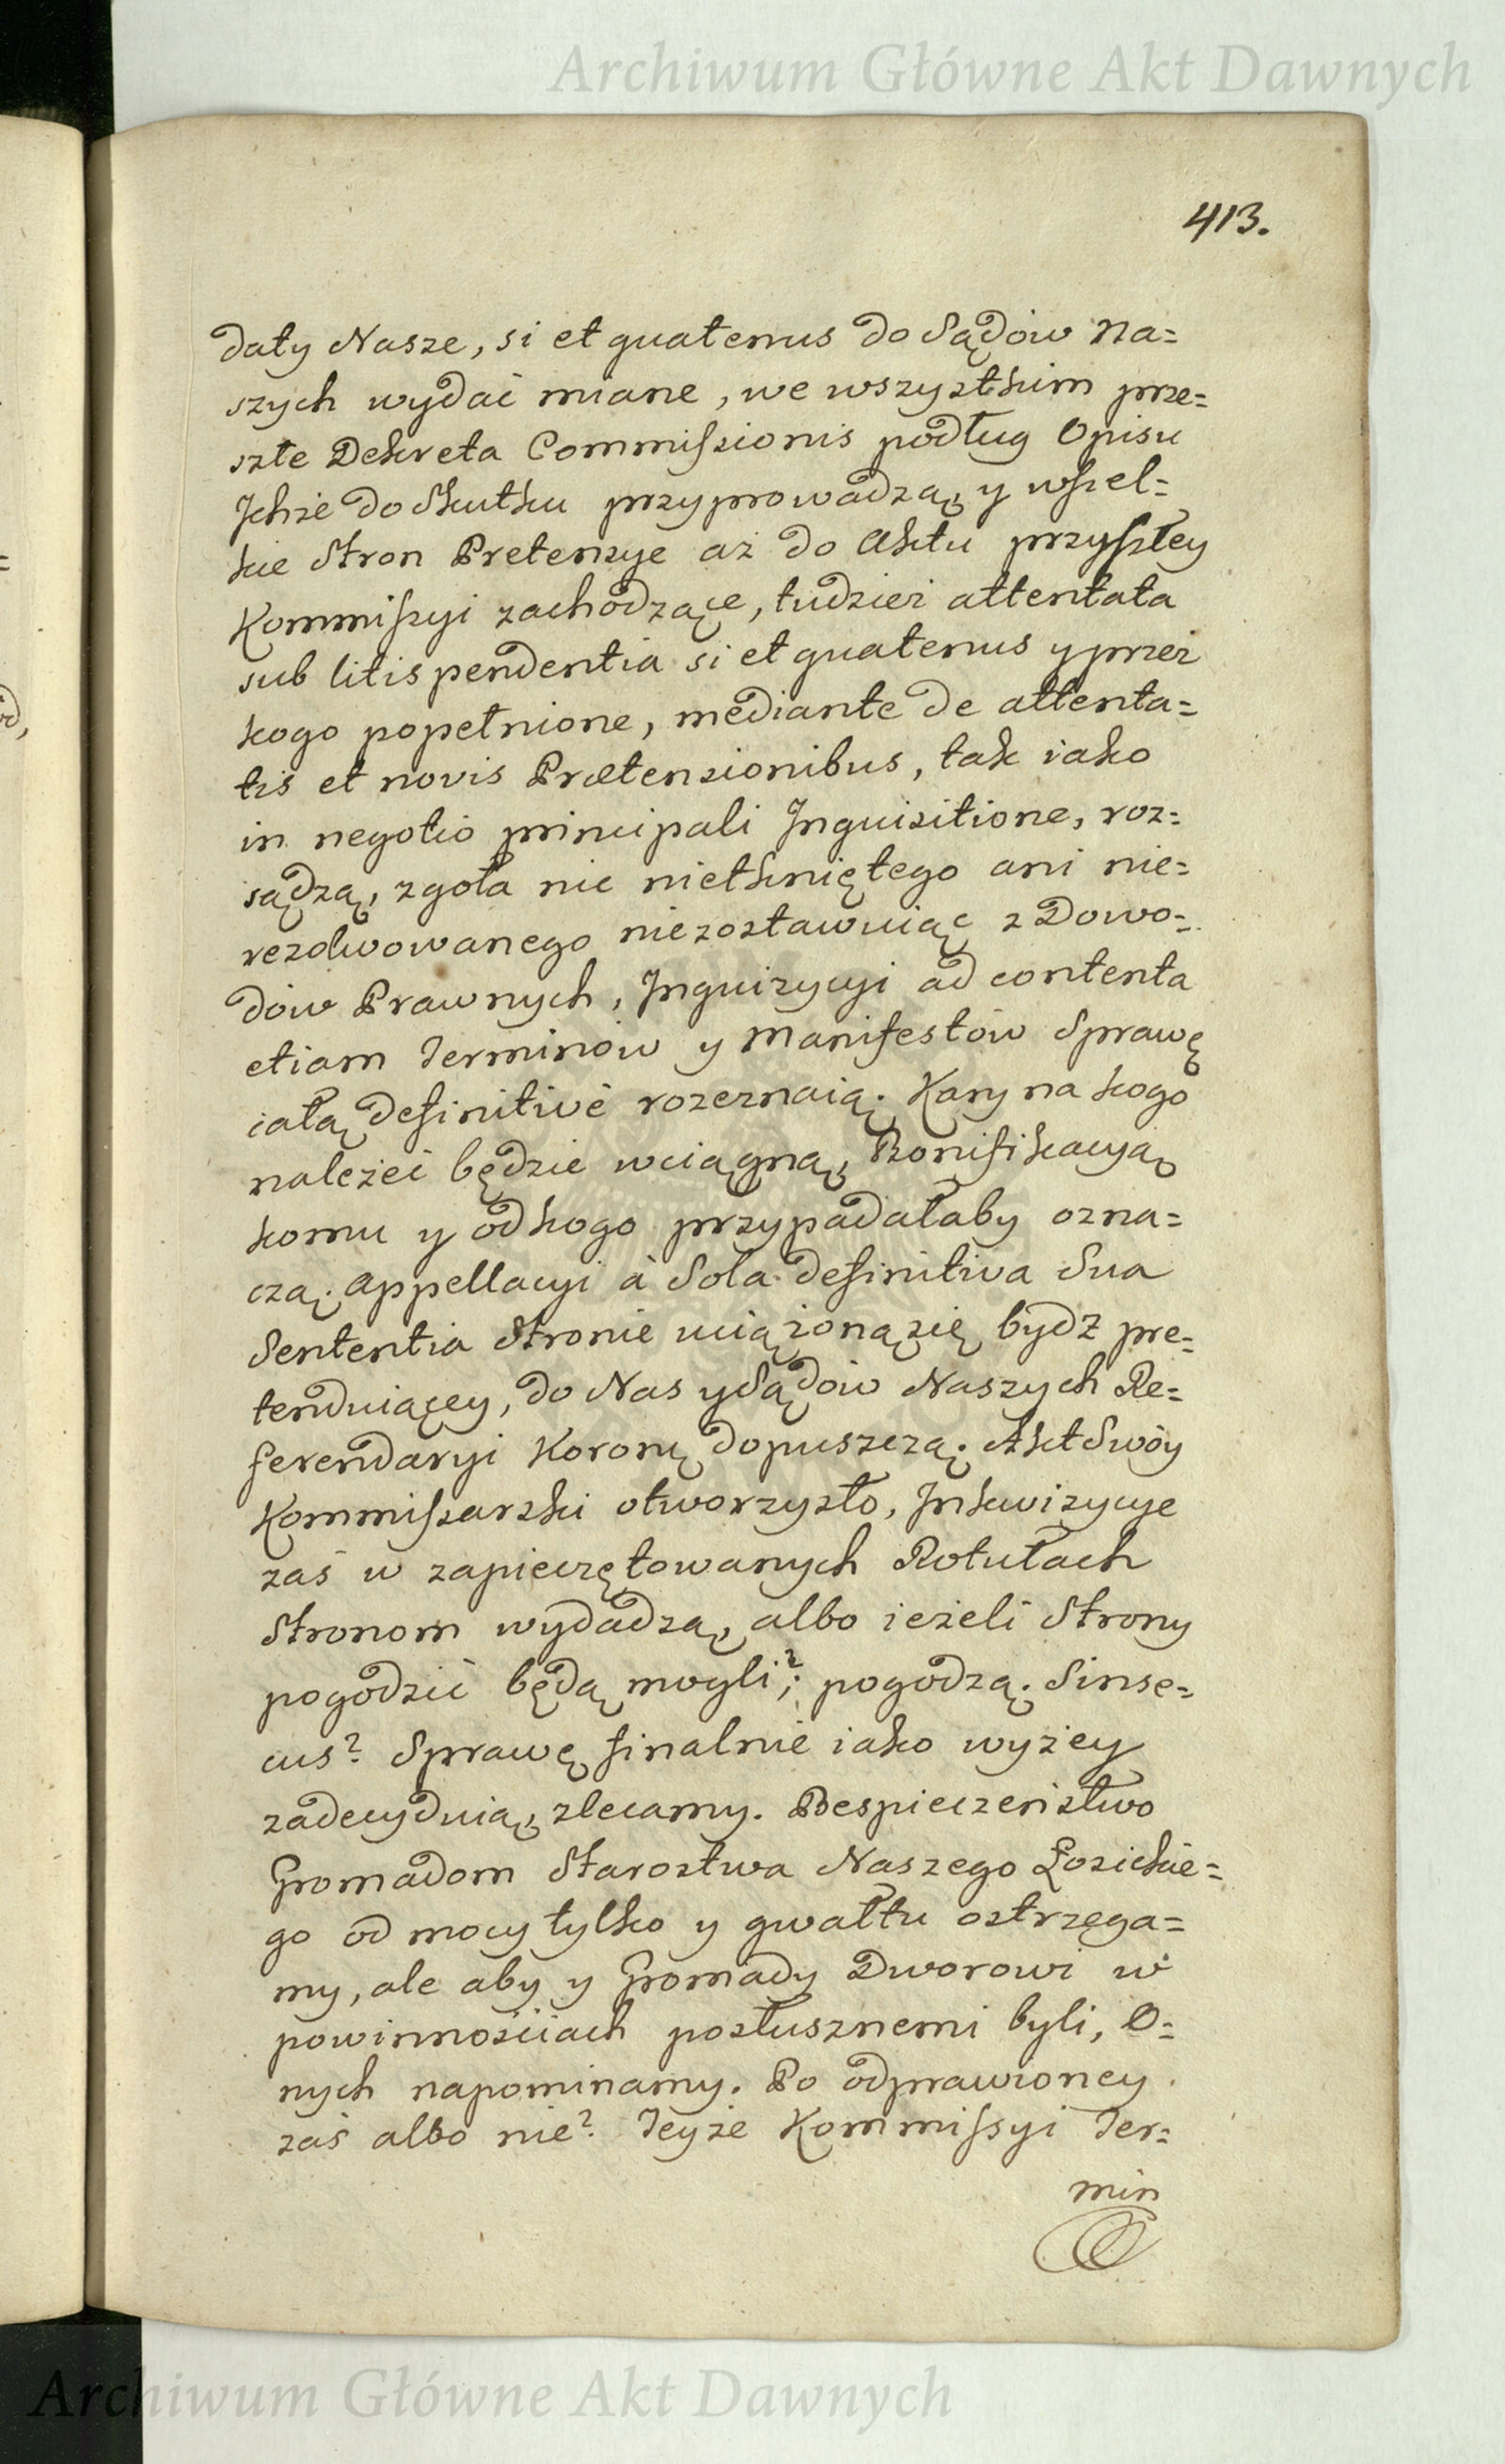 Archiwum Główne Akt Dawnych
413.
daty Nasze, si et quatenus do Sądów Na=
szych wydać miane, we wszystkim prze=
szłe Dekreta Commissionis podług Opisu
Ichże do Skutku przyprowadzą, y wszel=
kie Stron Pretensye aż do Aktu przyszłey
Kommissyi zachodzące, tudzież attentata
sub litis pendentia si et quatenus y przez
kogo popełnione, mediante de attenta=
tis et novis Prætensionibus, tak iako
in negotio principali Inquisitione, roz=
sądzą, zgoła nic nietkniętego ani nie=
rezolwowanego niezostawuiąc z Dowo=
dów Prawnych, Inquizycyi ad contenta
etiam Terminów y Manifestów Sprawę
całą definitivè rozeznaią. Kary na kogo
należeć będzie wciągną, Bonifikacyą
komu y od kogo przypadałaby ozna=
czą. Appellacyi à Sola definitiva Sua
Sententia Stronie uciążoną się bydz pre=
tenduiącey, do Nas y Sądów Naszych Re=
ferendaryi Koronę dopuszczą. Akt Swóy
Kommissarski otworzysto, Inkwizycye
zaś w zapieczętowanych Rotułach
Stronom wydadzą, albo ieżeli Strony
pogodzić będą mogli?; pogodzą. Sinse=
cus? Sprawę finalnie iako wyżey
zadecyduią, zlecamy. Bespieczeństwo
Gromadom Starostwa Naszego Łosickie=
go od mocy tylko y gwałtu ostrzega=
my, ale aby y Gromady Dworowi w
powinnościach posłusznemi byli, O=
nych napominamy. Po odprawioney
zaś albo nie? Teyże Kommissyi Ter=
min
Archiwum Główne Akt Dawnych